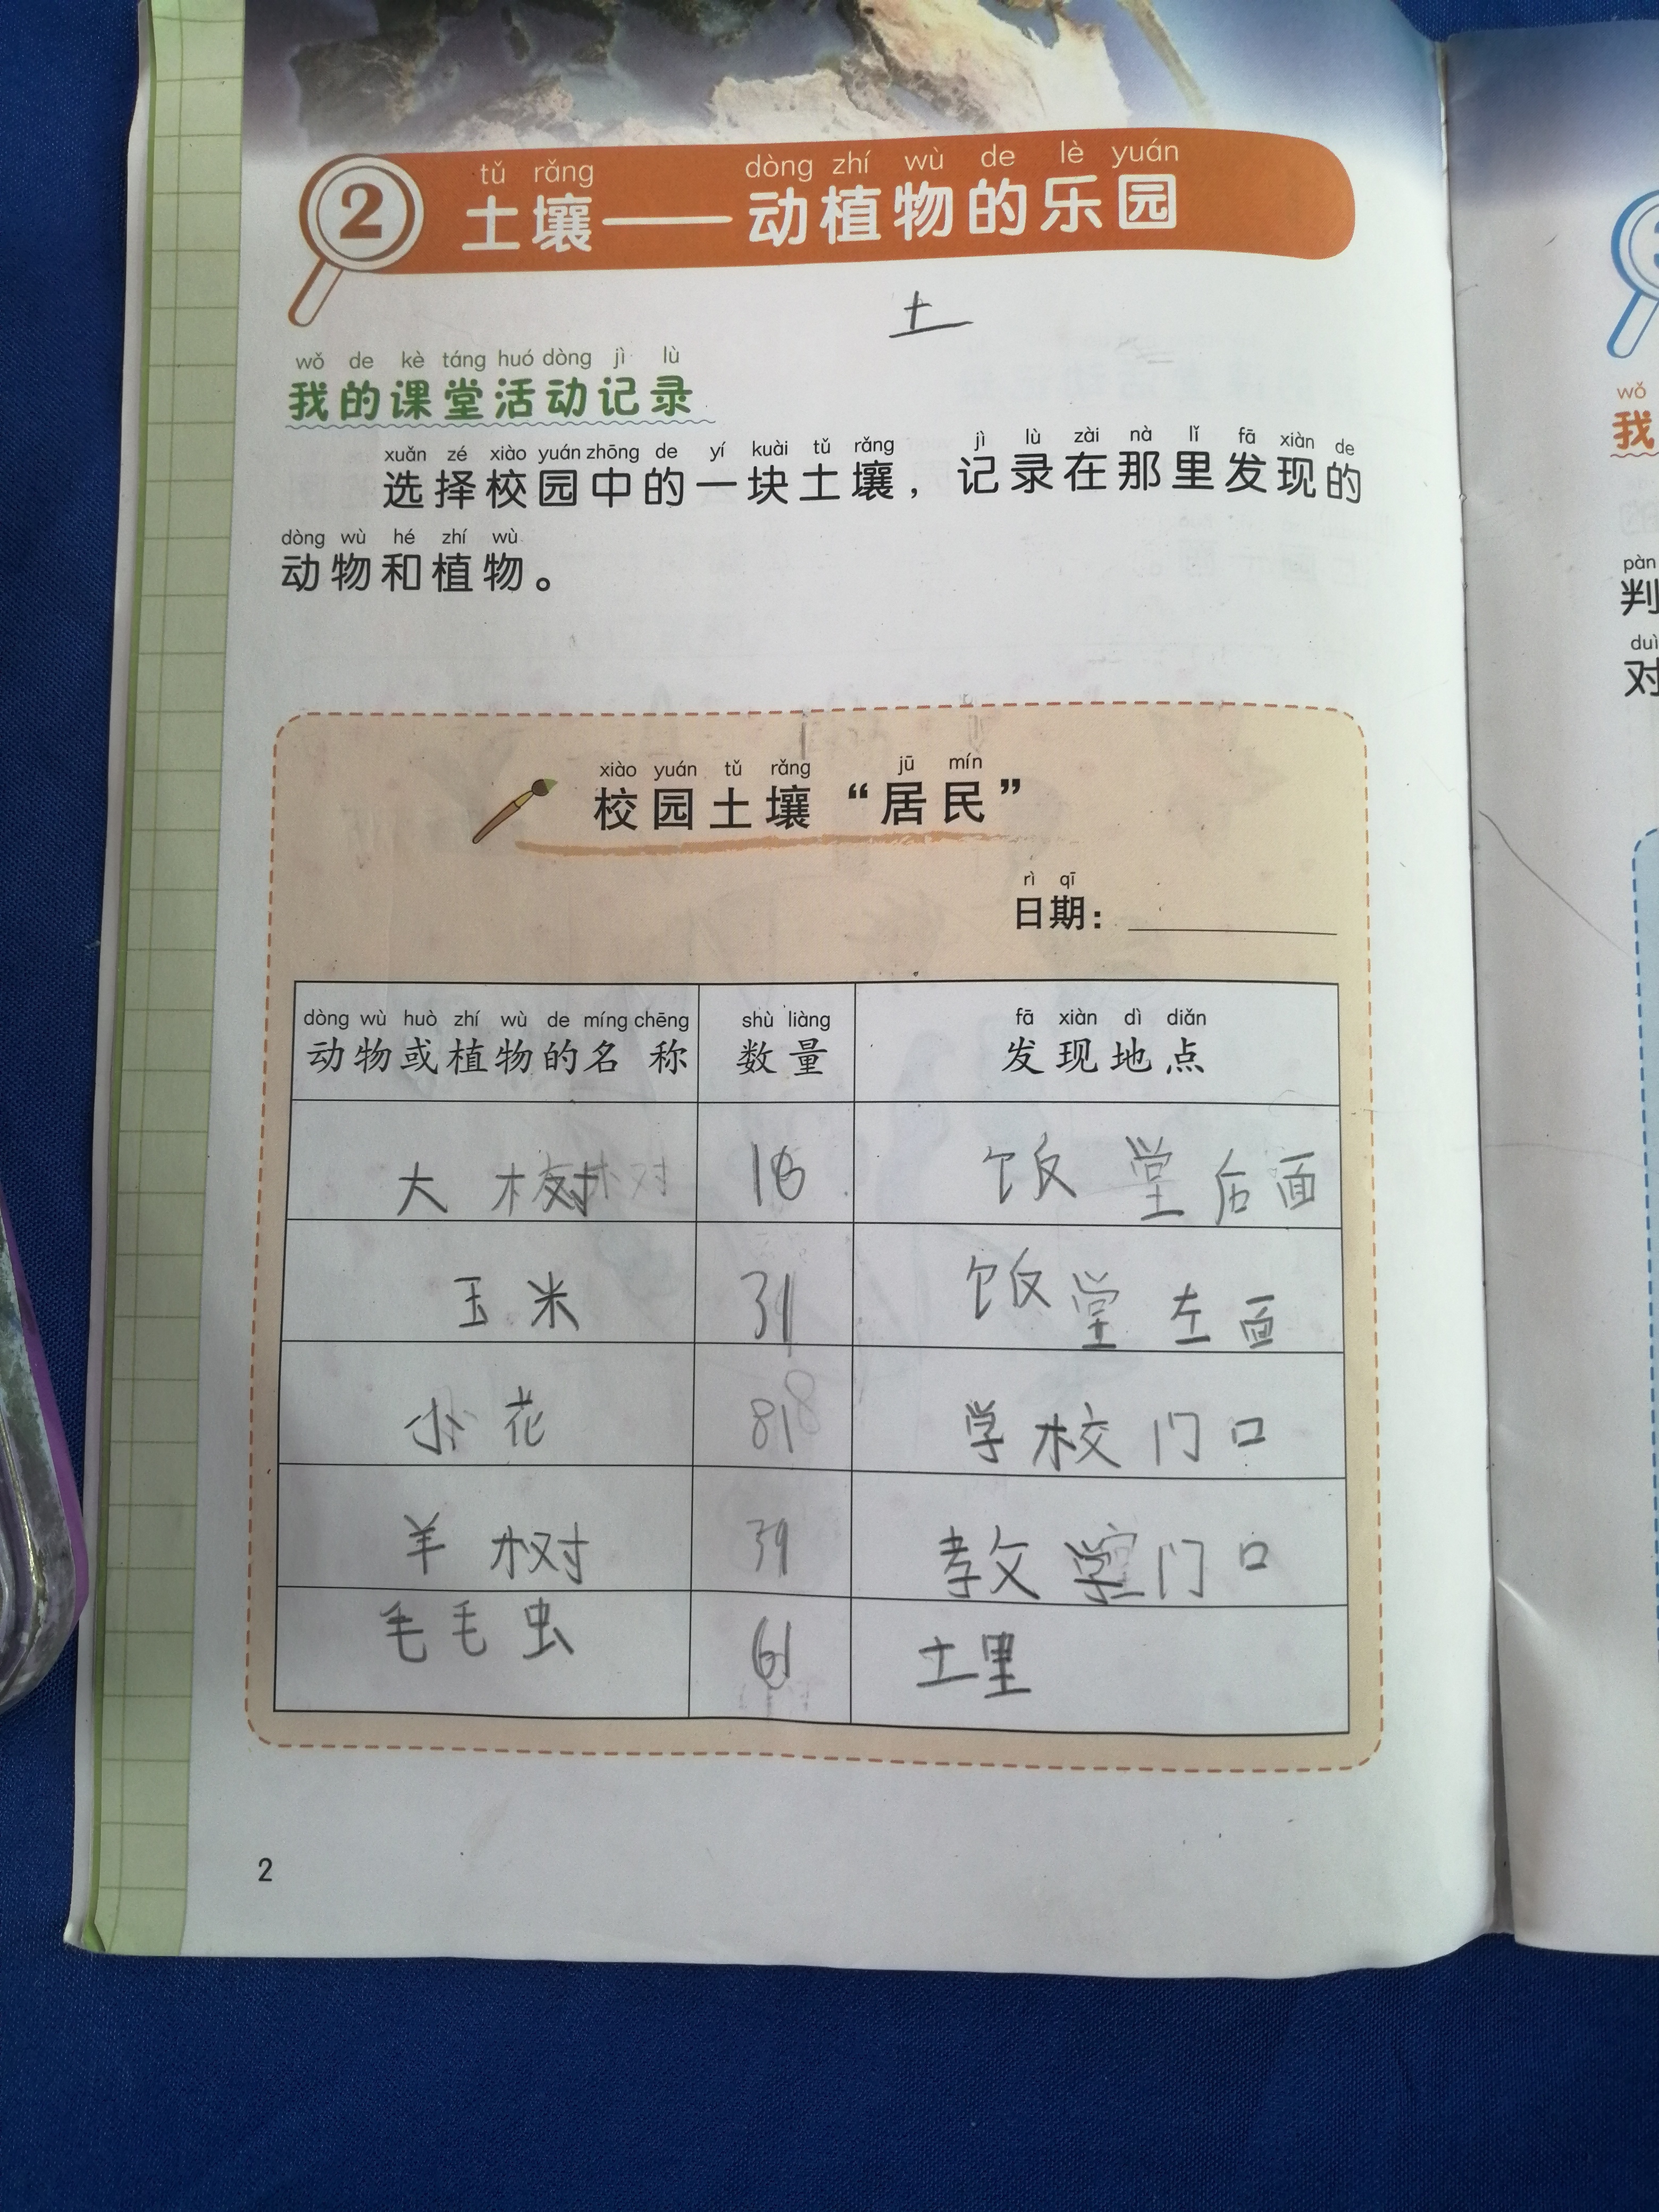 tǔ rǎng dòng zhí wù de lè yuán
2 土壤——动植物的乐园
土
wǒ de kè táng huó dòng jì lù
我的课堂活动记录
xuǎn zé xiào yuán zhōng de yí kuài tǔ rǎng jì lù zài nà lǐ fā xiàn de
选择校园中的一块土壤，记录在那里发现的
dòng wù hé zhí wù
动物和植物。
xiào yuán tǔ rǎng jū mín
校园土壤“居民”
rì qī
日期：
dòng wù huò zhí wù de míng chēng shù liàng fā xiàn dì diǎn
动物或植物的名称 数量 发现地点
大树 饭堂后面
玉米 31 饭堂左面
小花 81 学校门口
羊树 39 教室门口
毛毛虫 61 土里
2
wǒ
我
pàn
判
duì
对